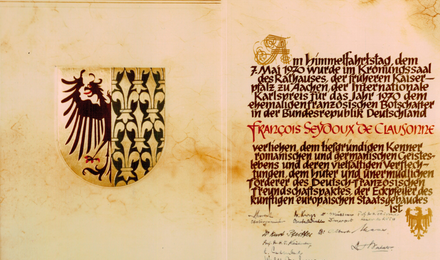 Am Himmelfahrtstag, dem
7. Mai 1970 wurde im Krönungssaal
des Rathauses, der früheren Kaiser-
pfalz zu Aachen, der Internationale
Karlspreis für das Jahr 1970 dem
ehemaligen französischen Botschafter
in der Bundesrepublik Deutschland
FRANÇOIS SEYDOUX DE CLAUSONNE
verliehen, dem tiefgründigen Kenner
romanischen und germanischen Geistes-
lebens und deren vielfältigen Verflech-
tungen, dem Hüter und unermüdlichen
Förderer des Deutsch-Französischen
Freundschaftspaktes, der Eckpfeiler des
künftigen europäischen Staatsgebäudes
ist